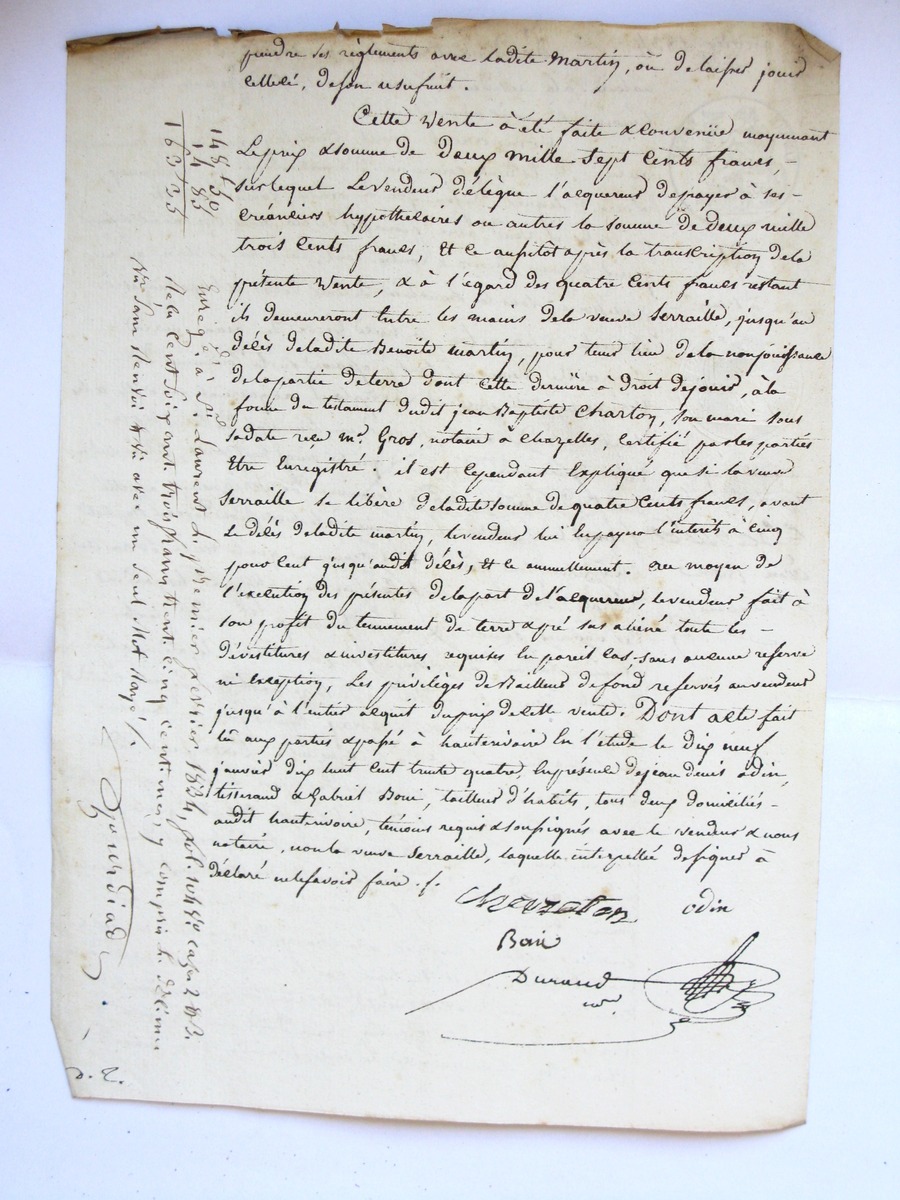 prendre ses règlements avec ladite Martin, où delaisser jouir
celleci, deson usufruit.
Cette vente à été faite & convenüe moyennant
Le prix & somme de deux mille sept cents francs,
surlequel Levendeur délègue l'acquereur depayer à ses
créanciers hypothécaires ou autres la somme de deux mille
trois cents francs, Et ce aussitôt après la transcription dela
présente vente, & à l'égard des quatre cents francs restant
ils demeureront Entre les mains dela veuve Serraille, jusqu'au
délès deladite Benoite Martin, pour tenir lieu dela nonjouissance
delapartie deterre dont cette dernière à droit dejouir, à la
forme du testament dudit jean Baptiste Charton, son mari sous
sa date reçu mr. Gros, notaire à Chazelles, certifié parles parties
Etre Enregistré. il est Cependant Expliqué que si la veuve
Serraille se libère deladite somme de quatre Cents francs, avant
Le délès deladite Martin, levendeur lui Enpayera l'interêt à cinq
pour Cent jusqu'audit délès, Et ce annuellement. au moyen de
l'execution des présentes delapart del'acquereur, levendeur fait à
son profit du tennement de terre & pré sus aliené toute les
dévestitures & investitures requises En pareil Cas, sans aucune reserve
ni Exception, Les privilèges de Bailleur defond reservés auvendeur
jusqu'à l'entier acquit duprix decette vente. Dont acte fait
lû aux parties & passé à hauterivoire En l'étude le dix neuf
janvier dix huit cent trente quatre, Enprésence dejean denis Odin,
tisserand & Gabriel Boni, tailleur d'habits, tous deux domiciliés
audit hauterivoire, témoins requis & soussignés avec le vendeur & nous
notaire, non la veuve Serraille, laquelle interpellée designer à
déclaré nelesavoir faire.
Odin
Durand
nre.
148 50
14 85
163 35
Enregé. à St. Laurent le premier février 1834, fol. 104 Vo case 2 & 3.
Reçu cent soixante trois francs trente cinq centimes y compris le décime
sans Renvoi avec un seul Mot Rayé